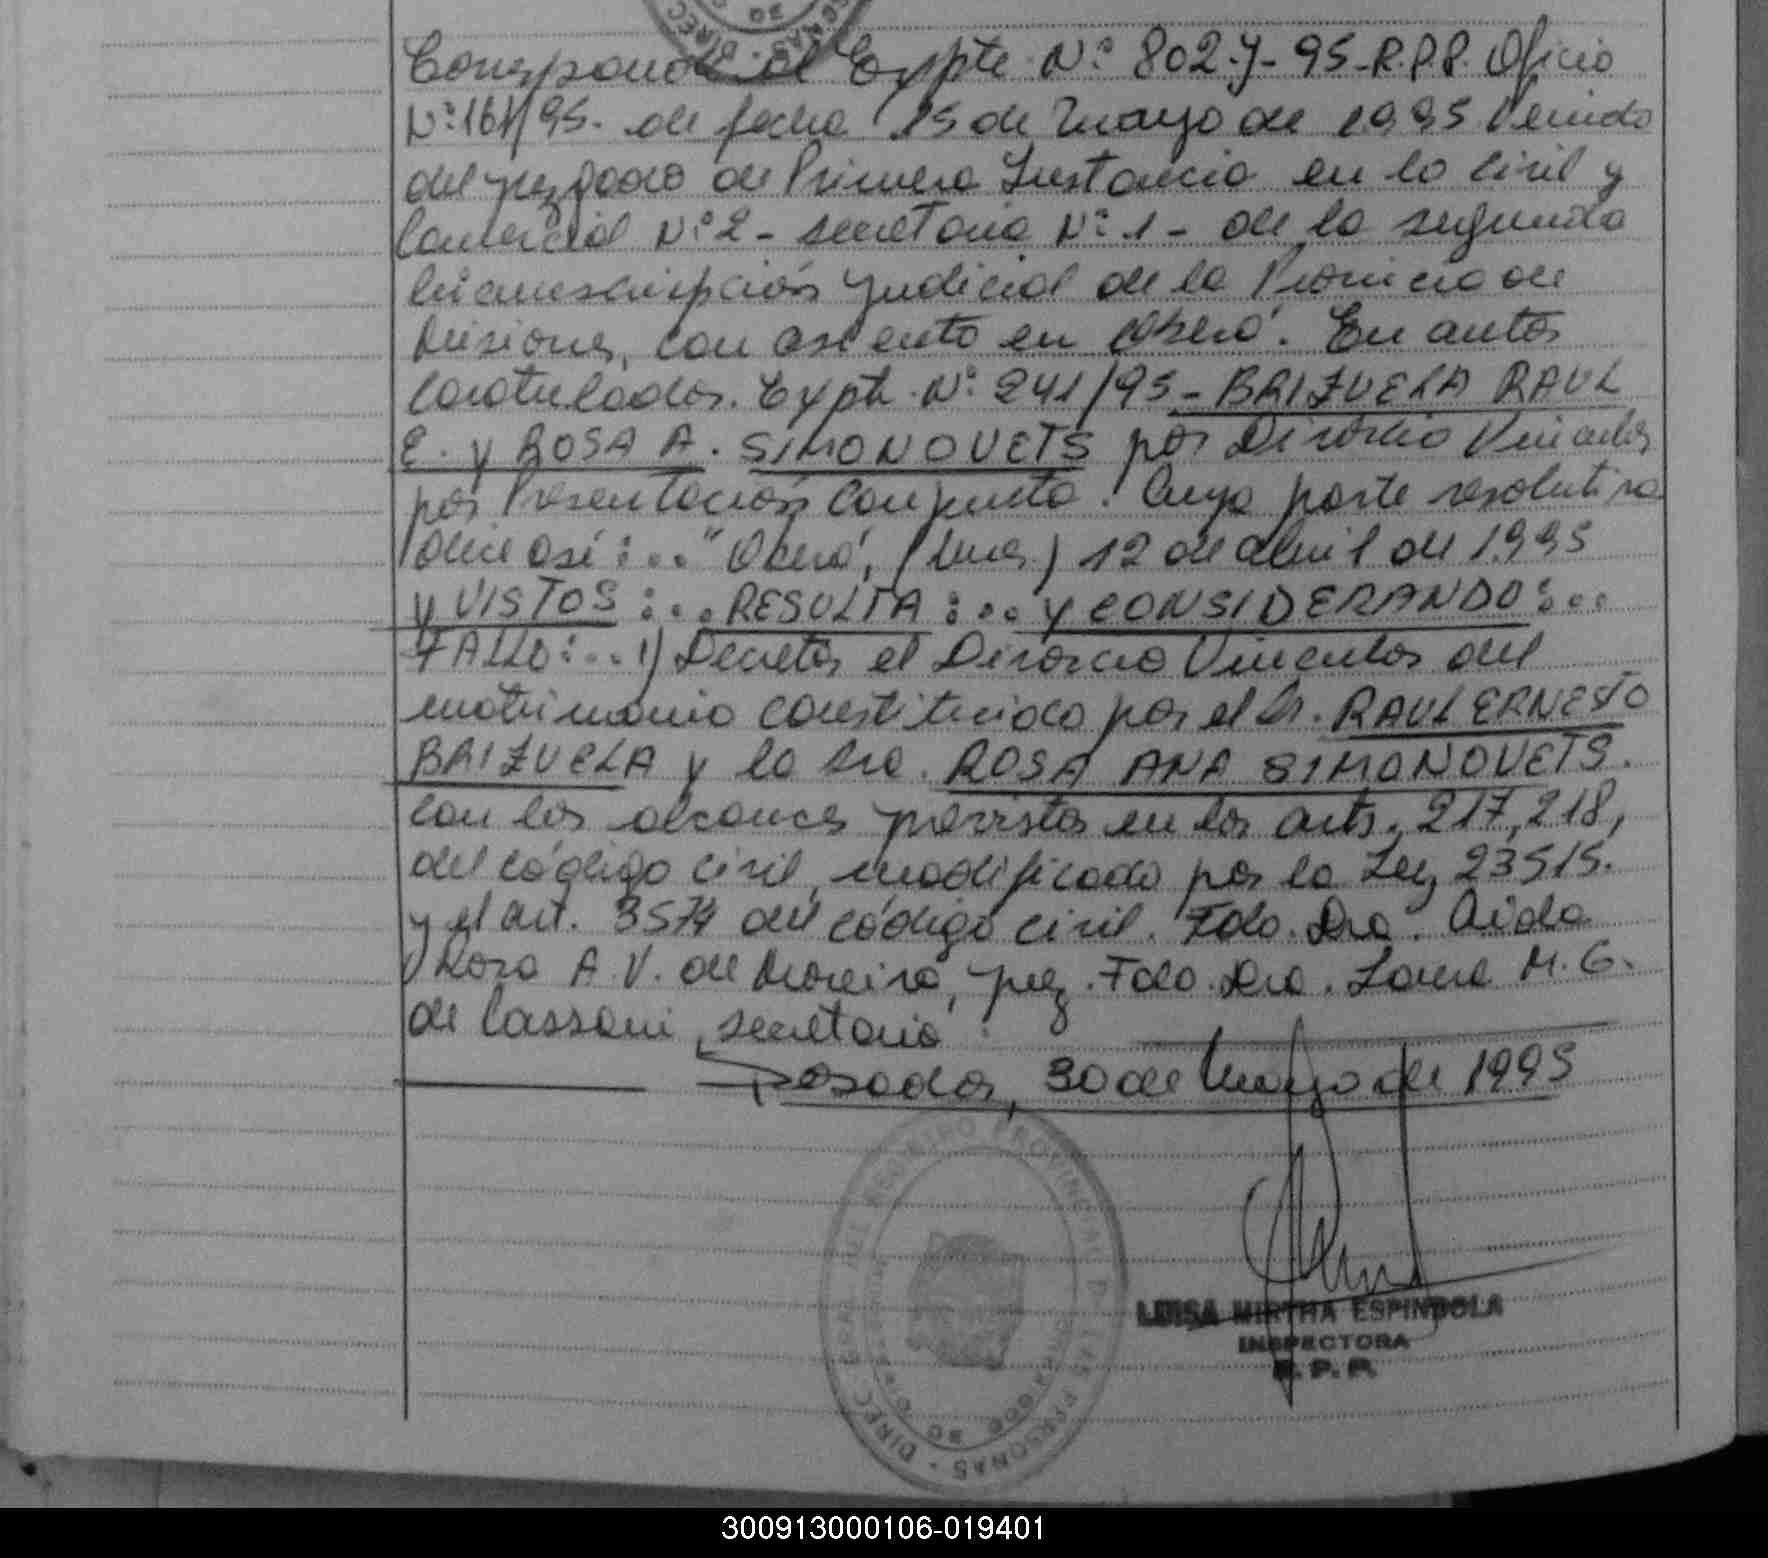 Corresponde al Expte. Nº 802-J-95-R.P.P. Oficio
Nº 161/95. de fecha 15 de mayo de 1995 Venido
del juzgado de Primera Instancia en lo Civil y
Comercial Nº 2 - secretaria Nº 1 - de la segunda
Circunscripción Judicial de la Provincia de
Misiones, con asiento en Oberá. En autos
Caratulados. Expte. Nº 241/95 - BRIZUELA RAUL
E. y ROSA A. SIMONOVETS por Divorcio Vincular
por Presentación Conjunta. Cuya parte resolutiva
dice así:..." Oberá, (Mnes) 12 de abril de 1995
y VISTOS:... RESULTA:... y CONSIDERANDO:...
FALLO:... 1) Decretar el Divorcio Vincular del
matrimonio constituido por el Sr. RAUL ERNESTO
BRIZUELA y la Sra. ROSA ANA SIMONOVETS.
con los alcances previstos en los arts. 217, 218,
del código civil, modificado por la Ley 23515.
y el art. 3574 del código civil. Fdo. Dra. Aida
Rosa A. V. de Moreira, juez. Fdo. Dra. M. G.
de Cassoni, secretaria
Posadas, 30 de Mayo de 1995
DIREC. GRAL. DEL REGISTRO PROVINCIAL DE LAS PERSONAS
LUISA MIRTHA ESPINDOLA
INSPECTORA
R. P. P.
300913000106-019401